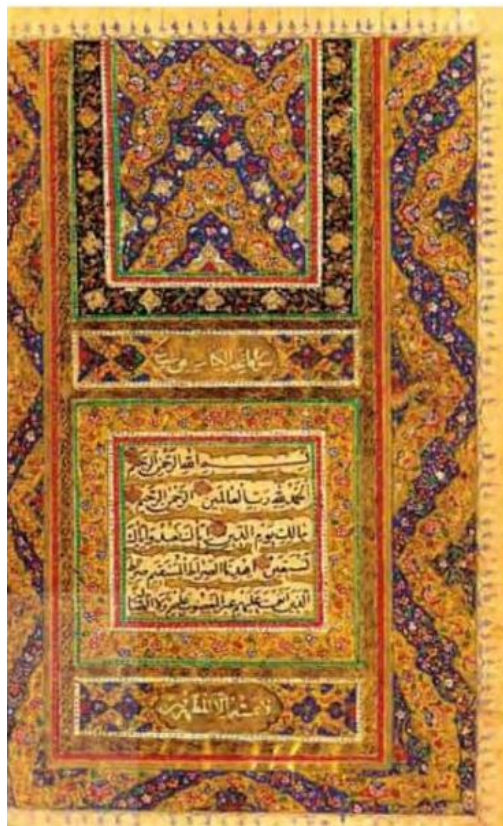 فاتحة الكتاب
بسم الله الرحمن الرحيم
الحمد لله رب العالمين الرحمن الرحيم
مالك يوم الدين اياك نعبد واياك
نستعين اهدنا الصراط المستقيم صراط
الذين انعمت عليهم غير المغضوب عليهم ولا الضالين
لا يمسه الا المطهرون